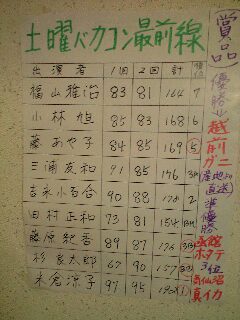 土曜バカコン最前線
出演者 1回 2回 計 順位
福山雅治 83 81 164 7
小林旭 85 83 168 6
藤あや子 84 85 169 5
三浦友和 91 85 176
吉永小百合 90 88 178 2
田村正和 73 81 154
藤原紀香 89 87 176
杉良太郎 67 90 157
米倉涼子 97 95 192 1
賞品
優勝
越前ガニ
産地直送
準優勝
函館ホタテ
3位
気仙沼
真イカ